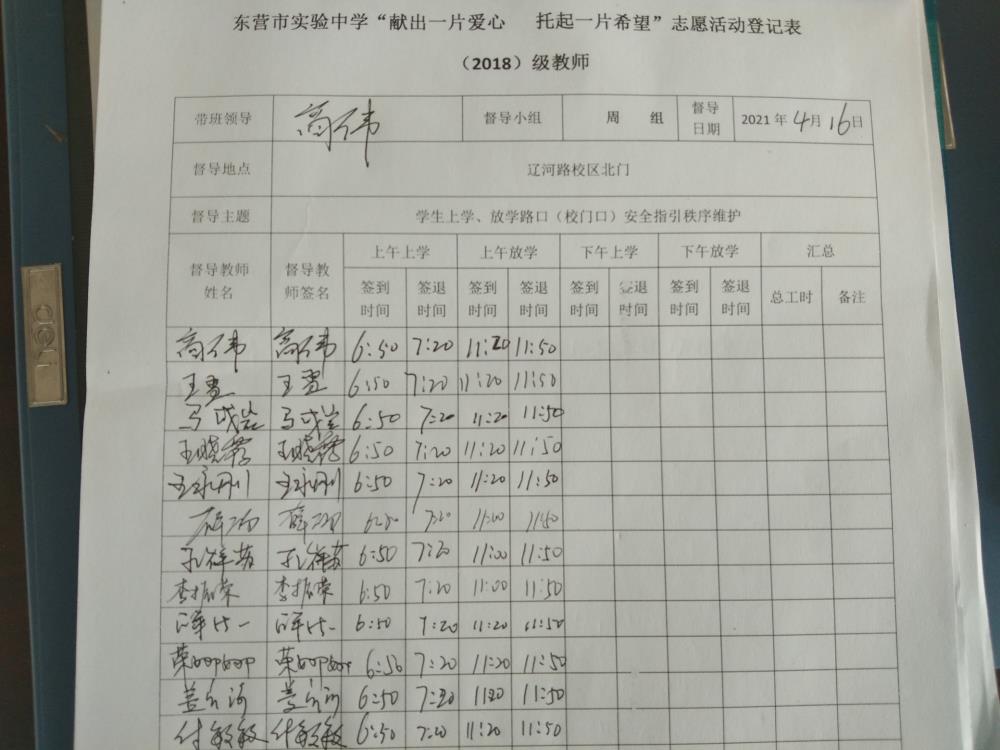 东营市实验中学“献出一片爱心 托起一片希望”志愿活动登记表
（2018）级教师
带班领导 高伟 督导小组 周 组 督导日期 2021年4月16日
督导地点 辽河路校区北门
督导主题 学生上学、放学路口（校门口）安全指引秩序维护
督导教师姓名 督导教师签名 上午上学 上午放学 下午上学 下午放学 汇总
签到时间 签退时间 签到时间 签退时间 签到时间 签退时间 签到时间 签退时间 总工时 备注
高伟 高伟 6:50 7:20 11:20 11:50
王 王 6:50 7:20 11:20 11:50
马 马 6:50 7:20 11:20 11:50
王晓 王晓 6:50 7:20 11:20 11:50
王永刚 王永刚 6:50 7:20 11:20 11:50
薛 薛 7:20
孔祥 孔祥 6:50 7:20 11:00 11:50
李振荣 李振荣 6:50 7:20 11:00 11:50
6:50 7:20 11:20 11:50
荣 荣 6:50 7:20 11:20 11:50
姜 姜 6:50 7:20 1120 11:50
付敏敏 付敏敏 6:50 7:20 11:20 11:50
deli